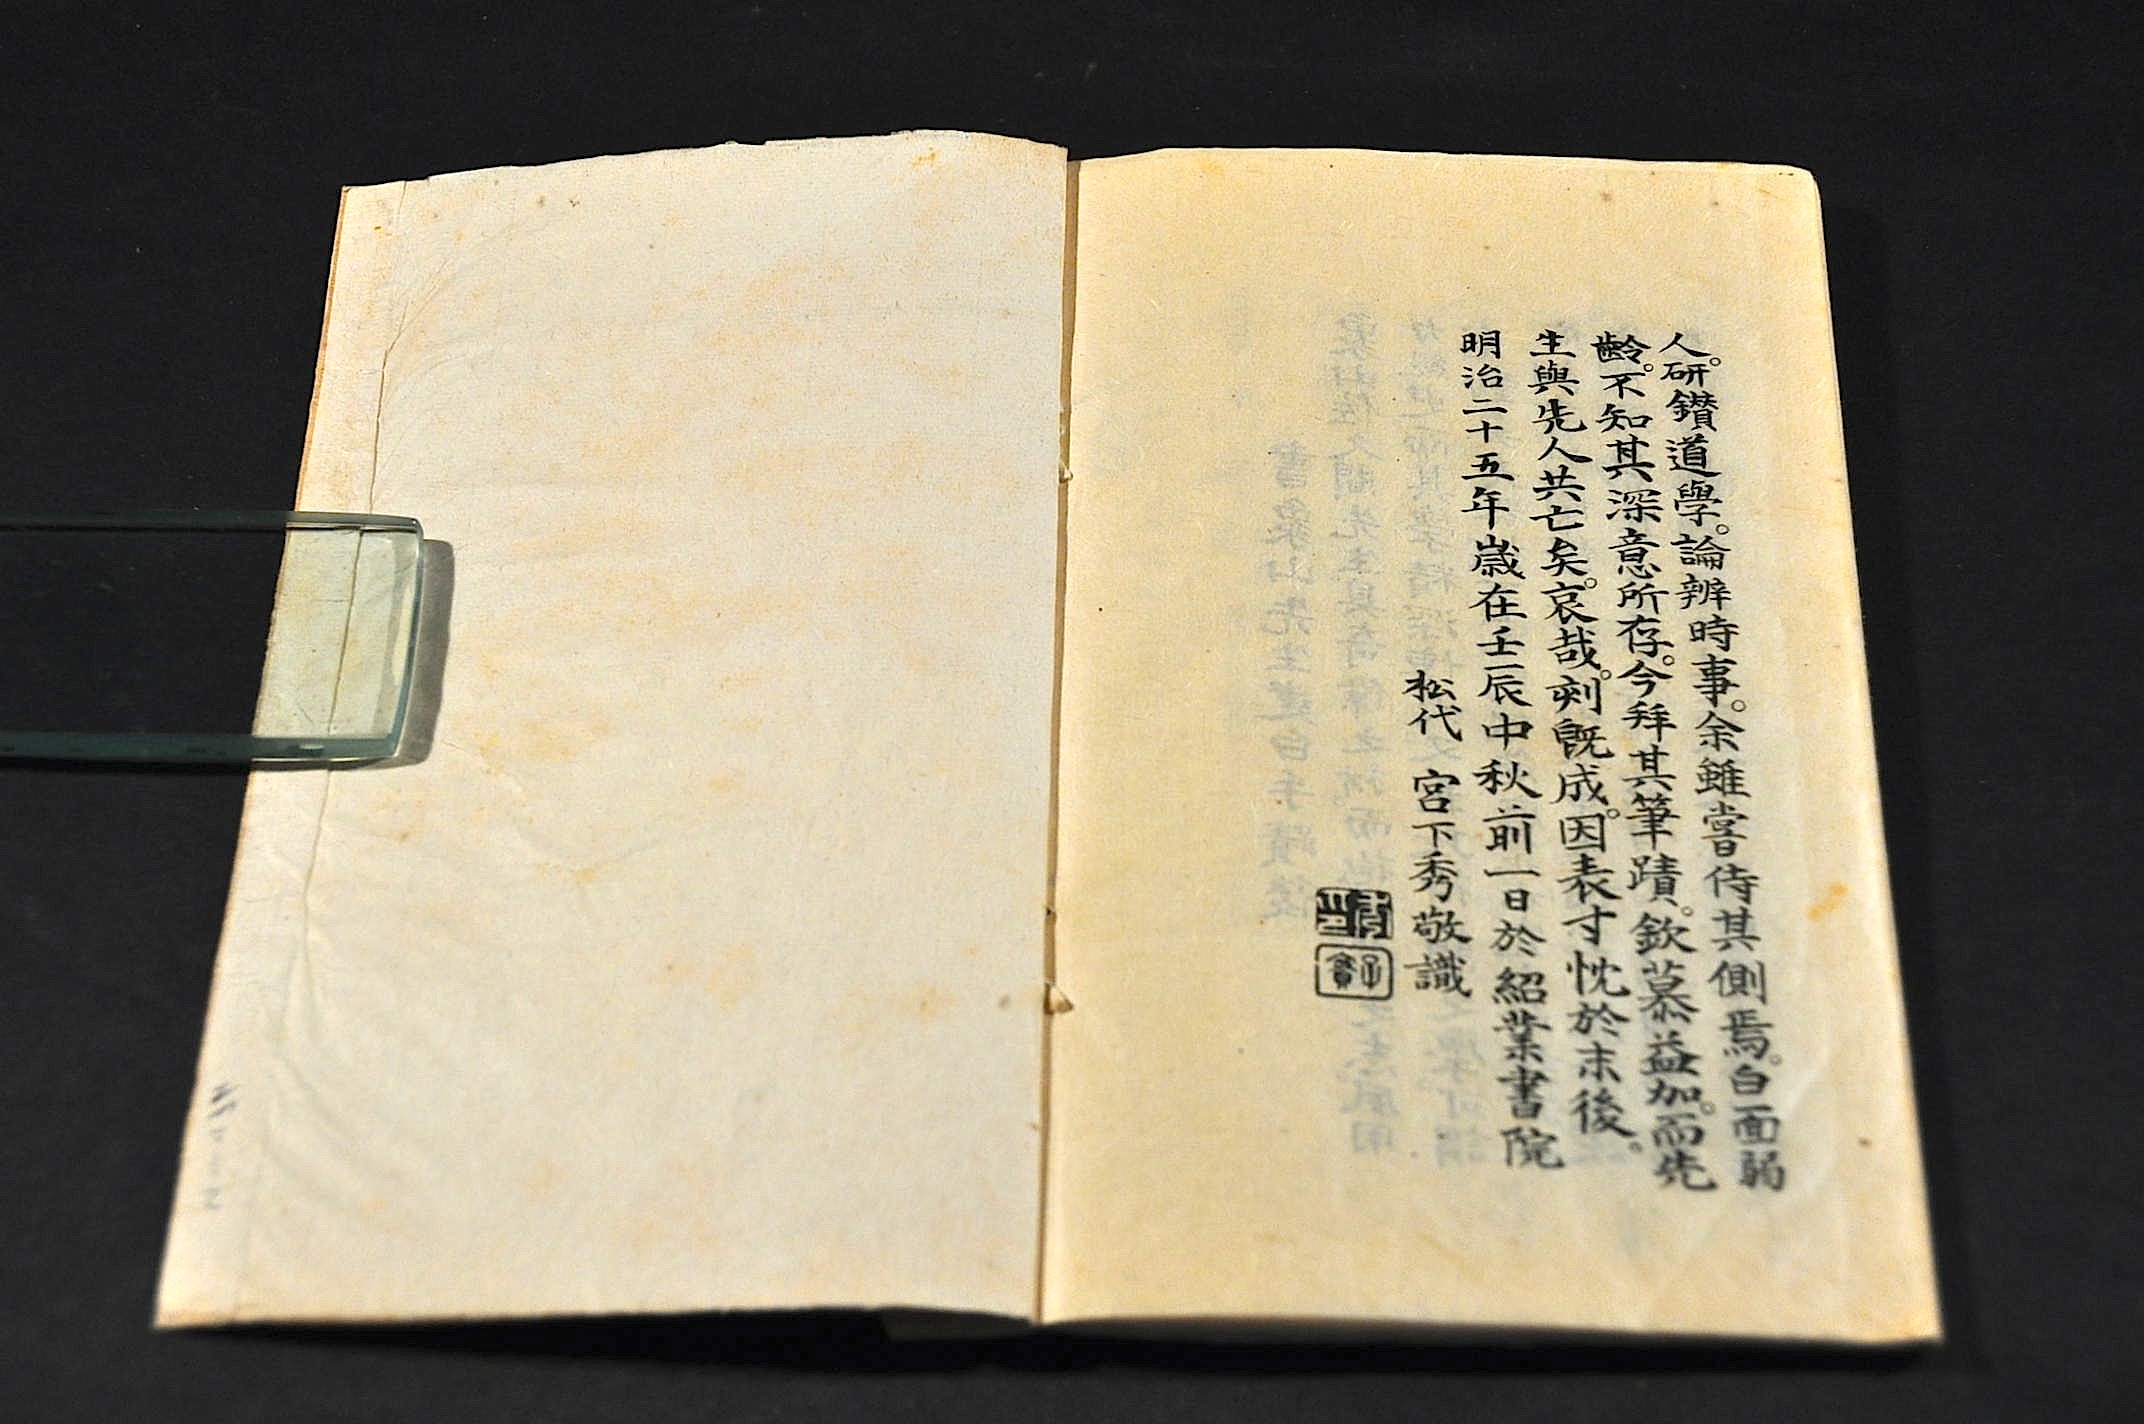 人。研鑚道學。論辨時事。余雖嘗侍其側焉。白面弱
齡。不知其深意所存。今拜其筆蹟。欽慕益加。而先
生與先人共亡矣。哀哉。刻既成。因表寸忱於末後。
明治二十五年歲在壬辰中秋前一日於紹業書院
松代 宮下秀敬識